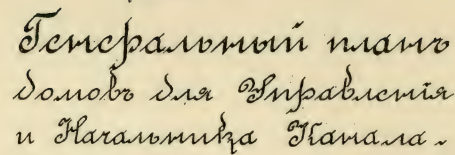 Генеральный планъ
домовъ для Управленія
и Начальника Канала.